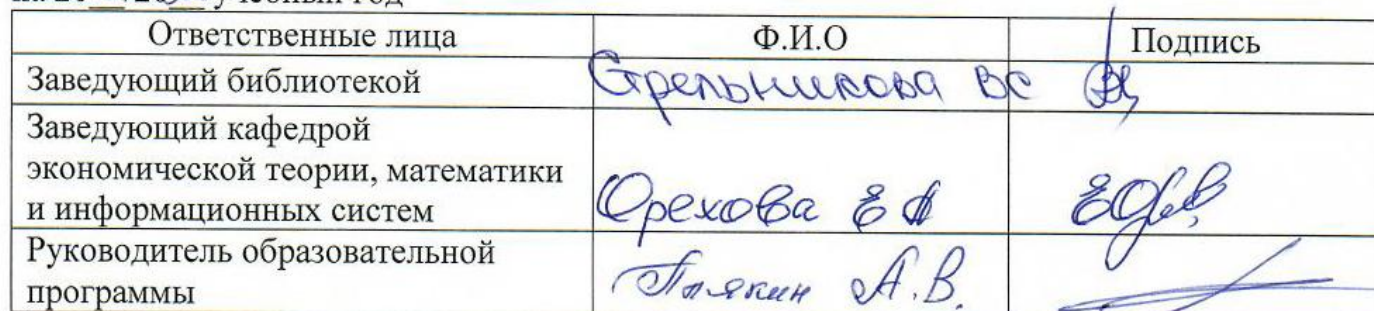 учебный год
Ответственные лица Ф.И.О Подпись
Заведующий библиотекой Стрельникова ВС
Заведующий кафедрой
экономической теории, математики
и информационных систем Орехова Е А
Руководитель образовательной
программы А.В.